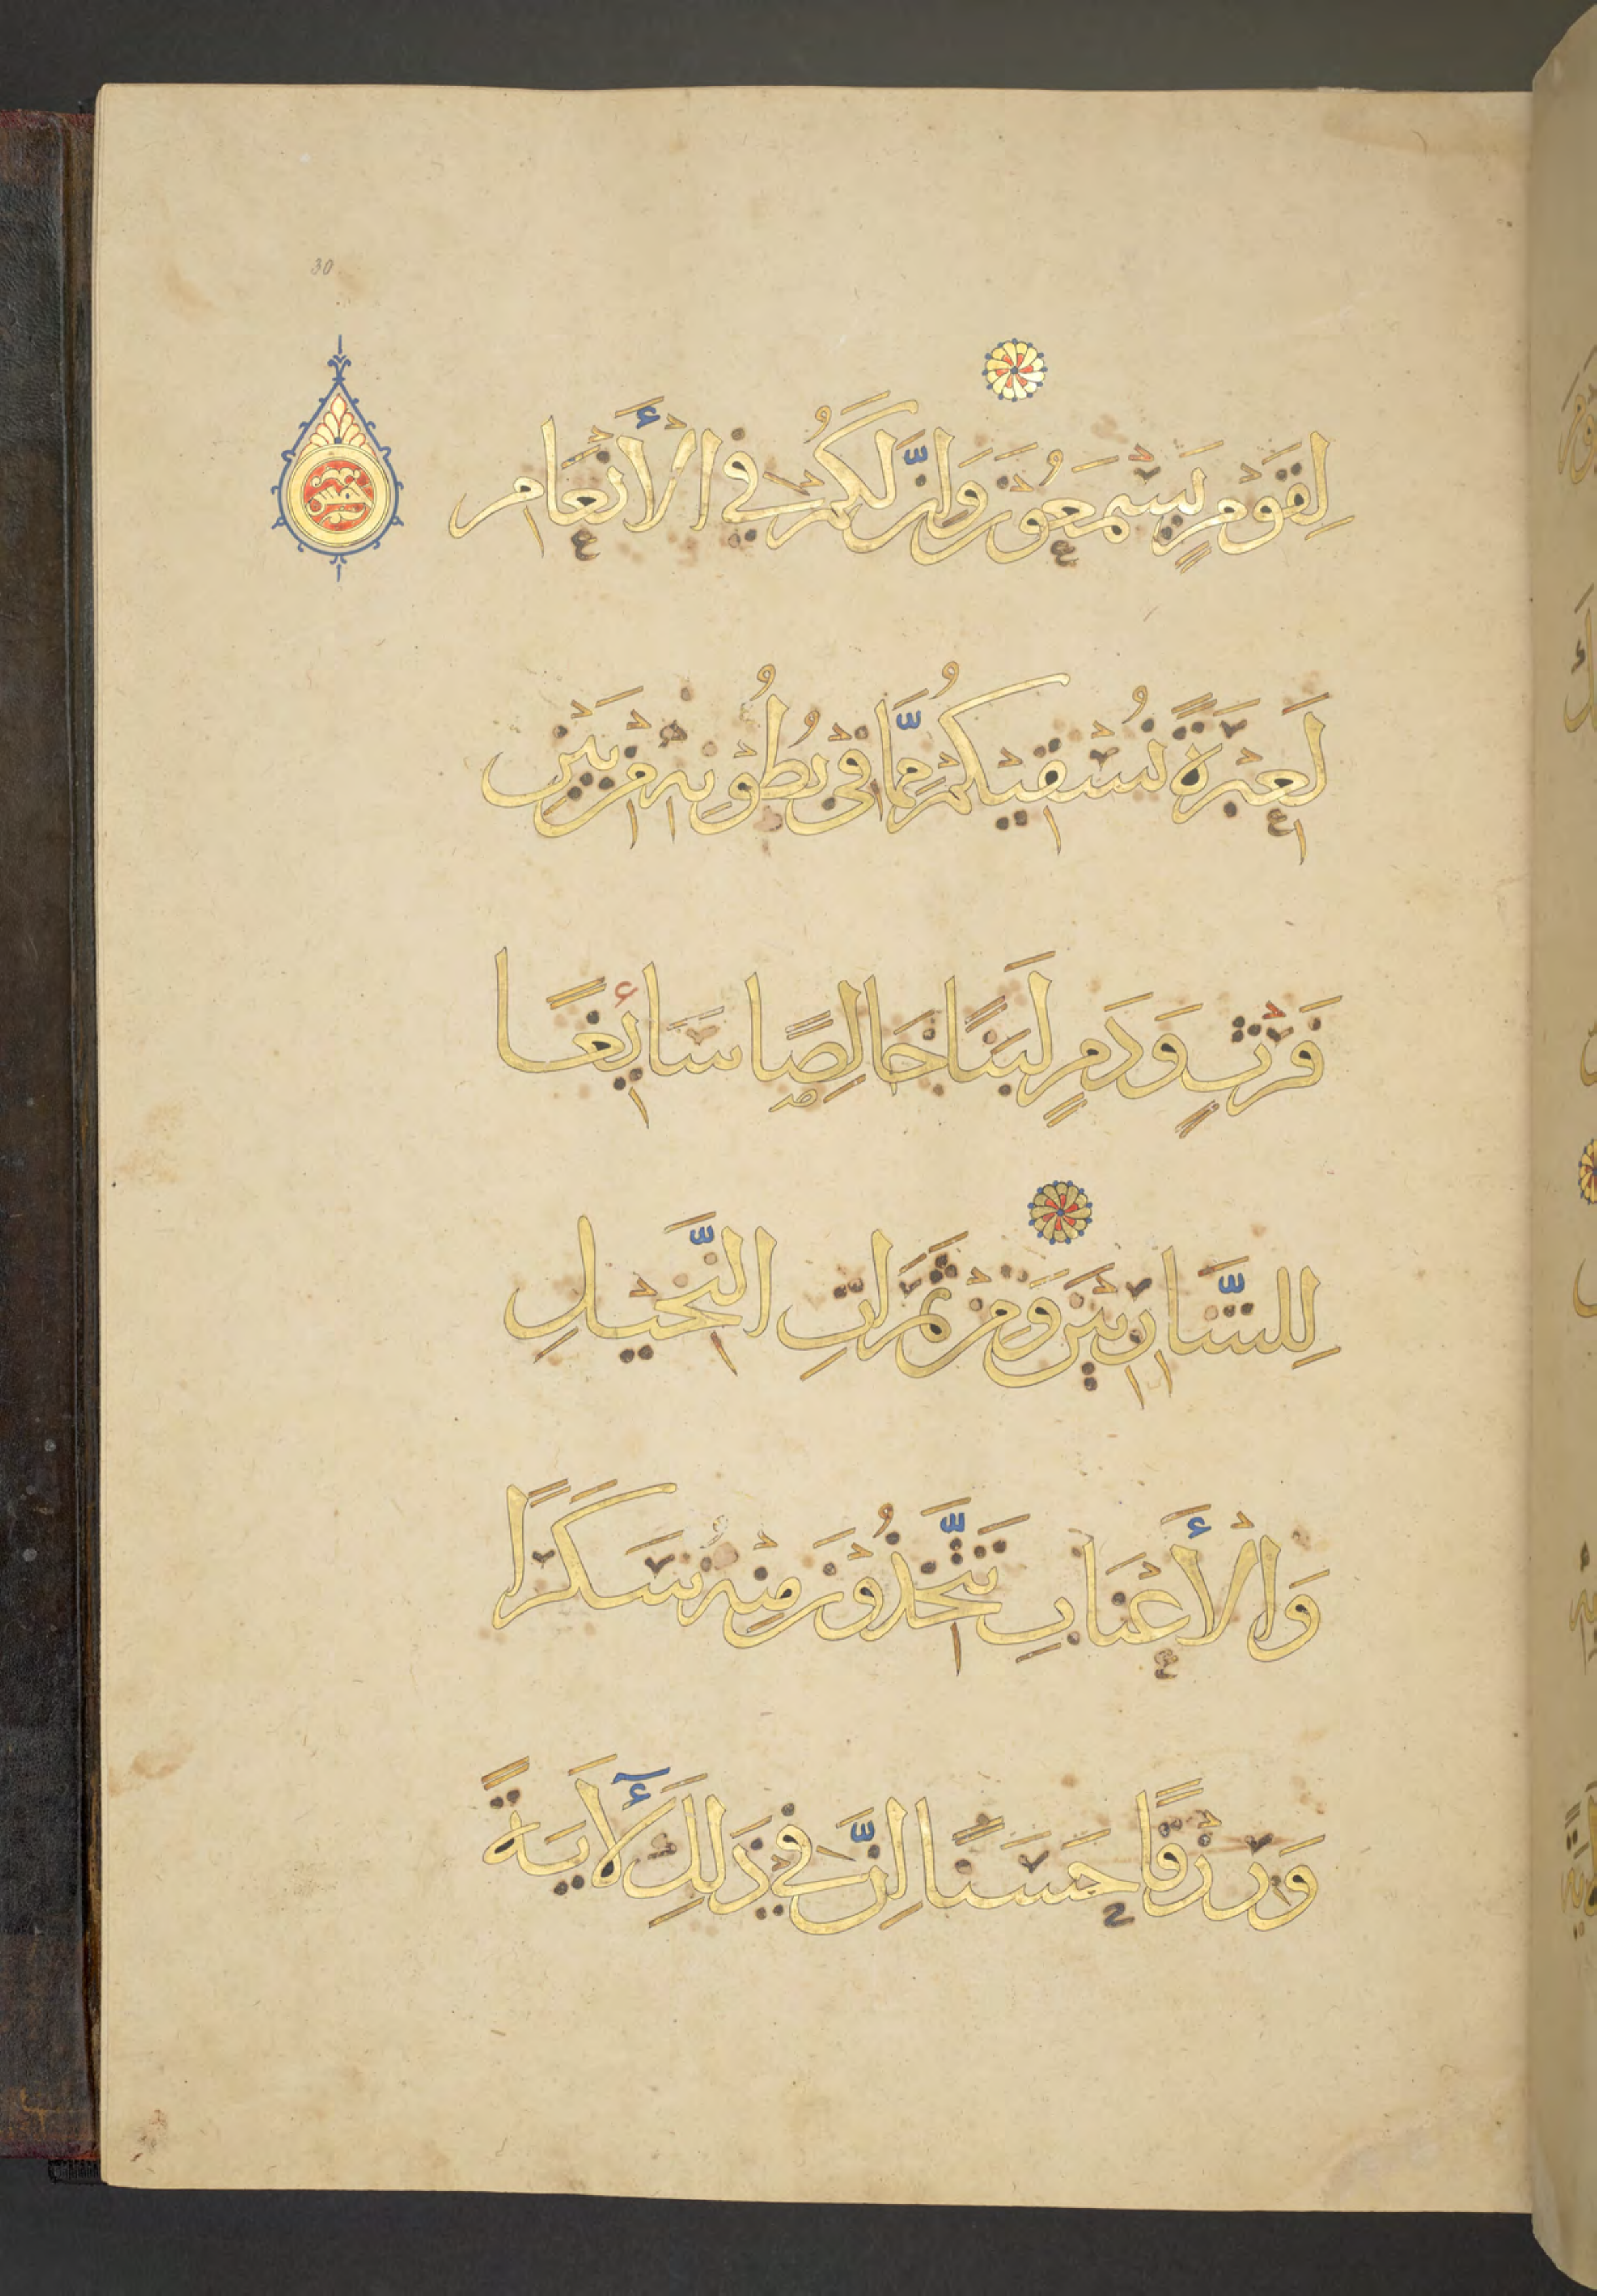 30
لِقَوْمٍ يَسْمَعُوْنَ وَاِنَّ لَكُمْ فِي الْأَنْعَامِ
خمس
لَعِبْرَةً نُسْقِيْكُمْ مِمَّا فِيْ بُطُوْنِهِ مِنْ بَيْنِ
فَرْثٍ وَدَمٍ لَبَنًا خَالِصًا سَايِٕغًا
لِلشَّارِبِيْنَ وَمِنْ ثَمَرَاتِ النَّخِيْلِ
وَالْأَعْنَابِ تَتَّخِذُوْنَ مِنْهُ سَكَرًا
وَرِزْقًا حَسَنًا اِنَّ فِي ذَلِكَ لَأٓيَةً